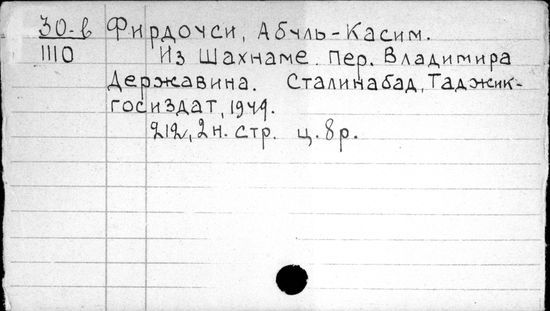 30-в Фирдоуси, Абуль-Касим.
1110 Из Шахнаме. Пер. Владимира
Державина. Сталинабад, Таджик-
госиздат, 1949.
212, 2 н. стр. ц. 8 р.